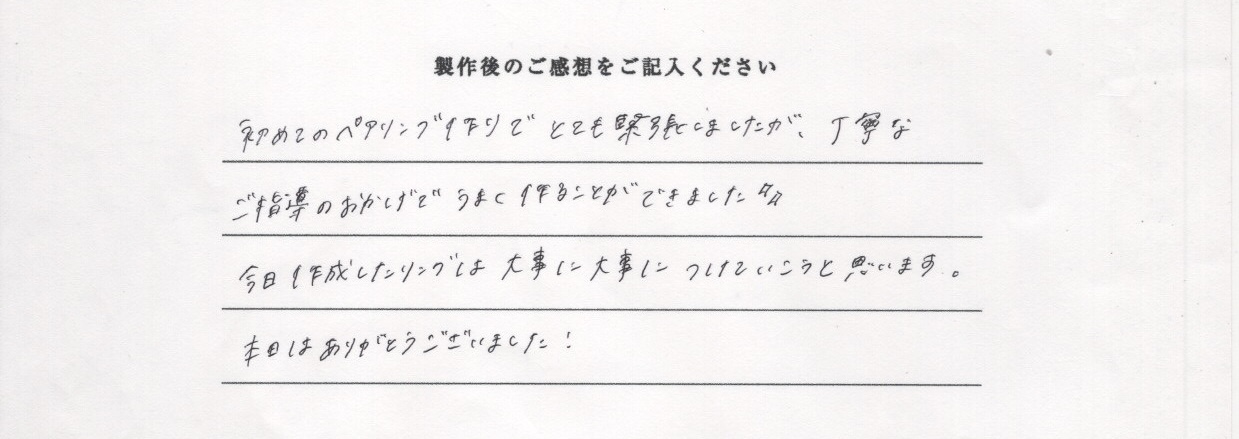 製作後のご感想をご記入ください
初めてのペアリング作りでとても緊張しましたが、丁寧な
ご指導のおかげでうまく作ることができました☆☆
今日作成したリングは大事に大事につけていこうと思います。
本日はありがとうございました!